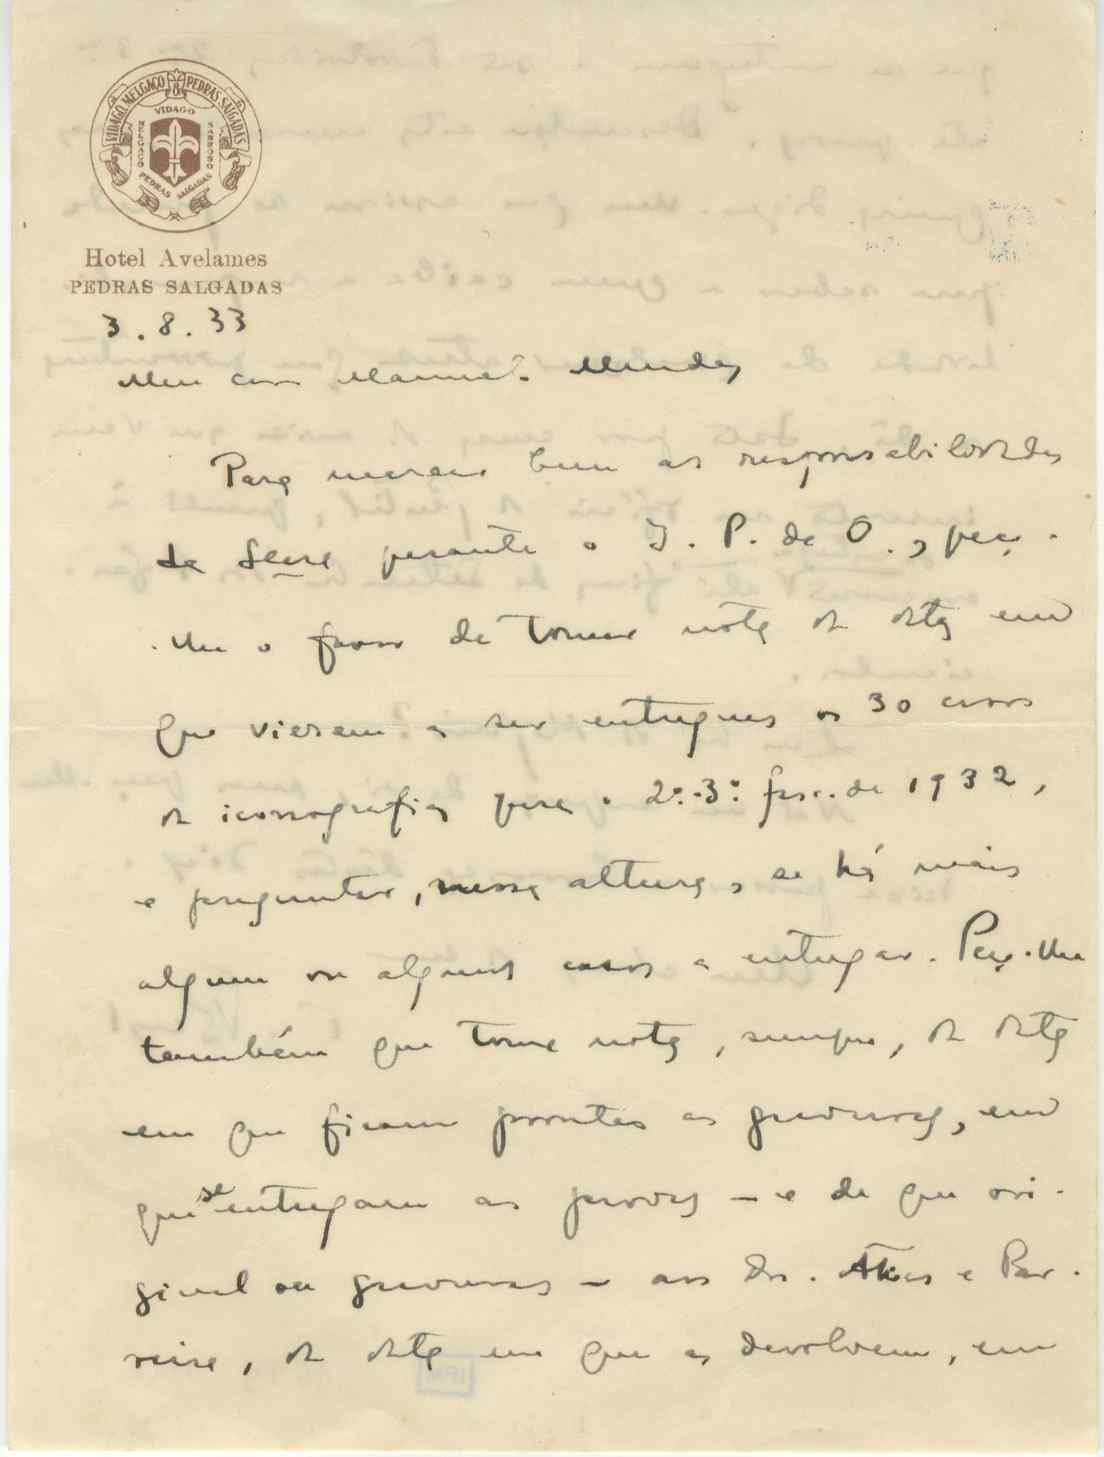 VIDAGO MELGAÇO & PEDRAS SALGADAS
VIDAGO
MELGAÇO
SABROSO
PEDRAS SALGADAS
Hotel Avelames
PEDRAS SALGADAS
3.8.33
Meu caro Manuel Mendes
Para marcar bem as responsabilidades
da Seara perante o I. P. de O., peço-
-lhe o favor de tomar nota da data em
que vieram a ser entregues os 30 casos
de iconografia para o 2º-3º fasc. de 1932,
e perguntar, nessa altura, se há mais
algum ou alguns casos a entregar. Peço-lhe
também que tome nota, sempre, da data
em que ficam prontas as gravuras, em
que se entregam as provas — e de que ori-
ginal ou gravuras — aos drs. e Par-
reira, da data em que as devolvem, em